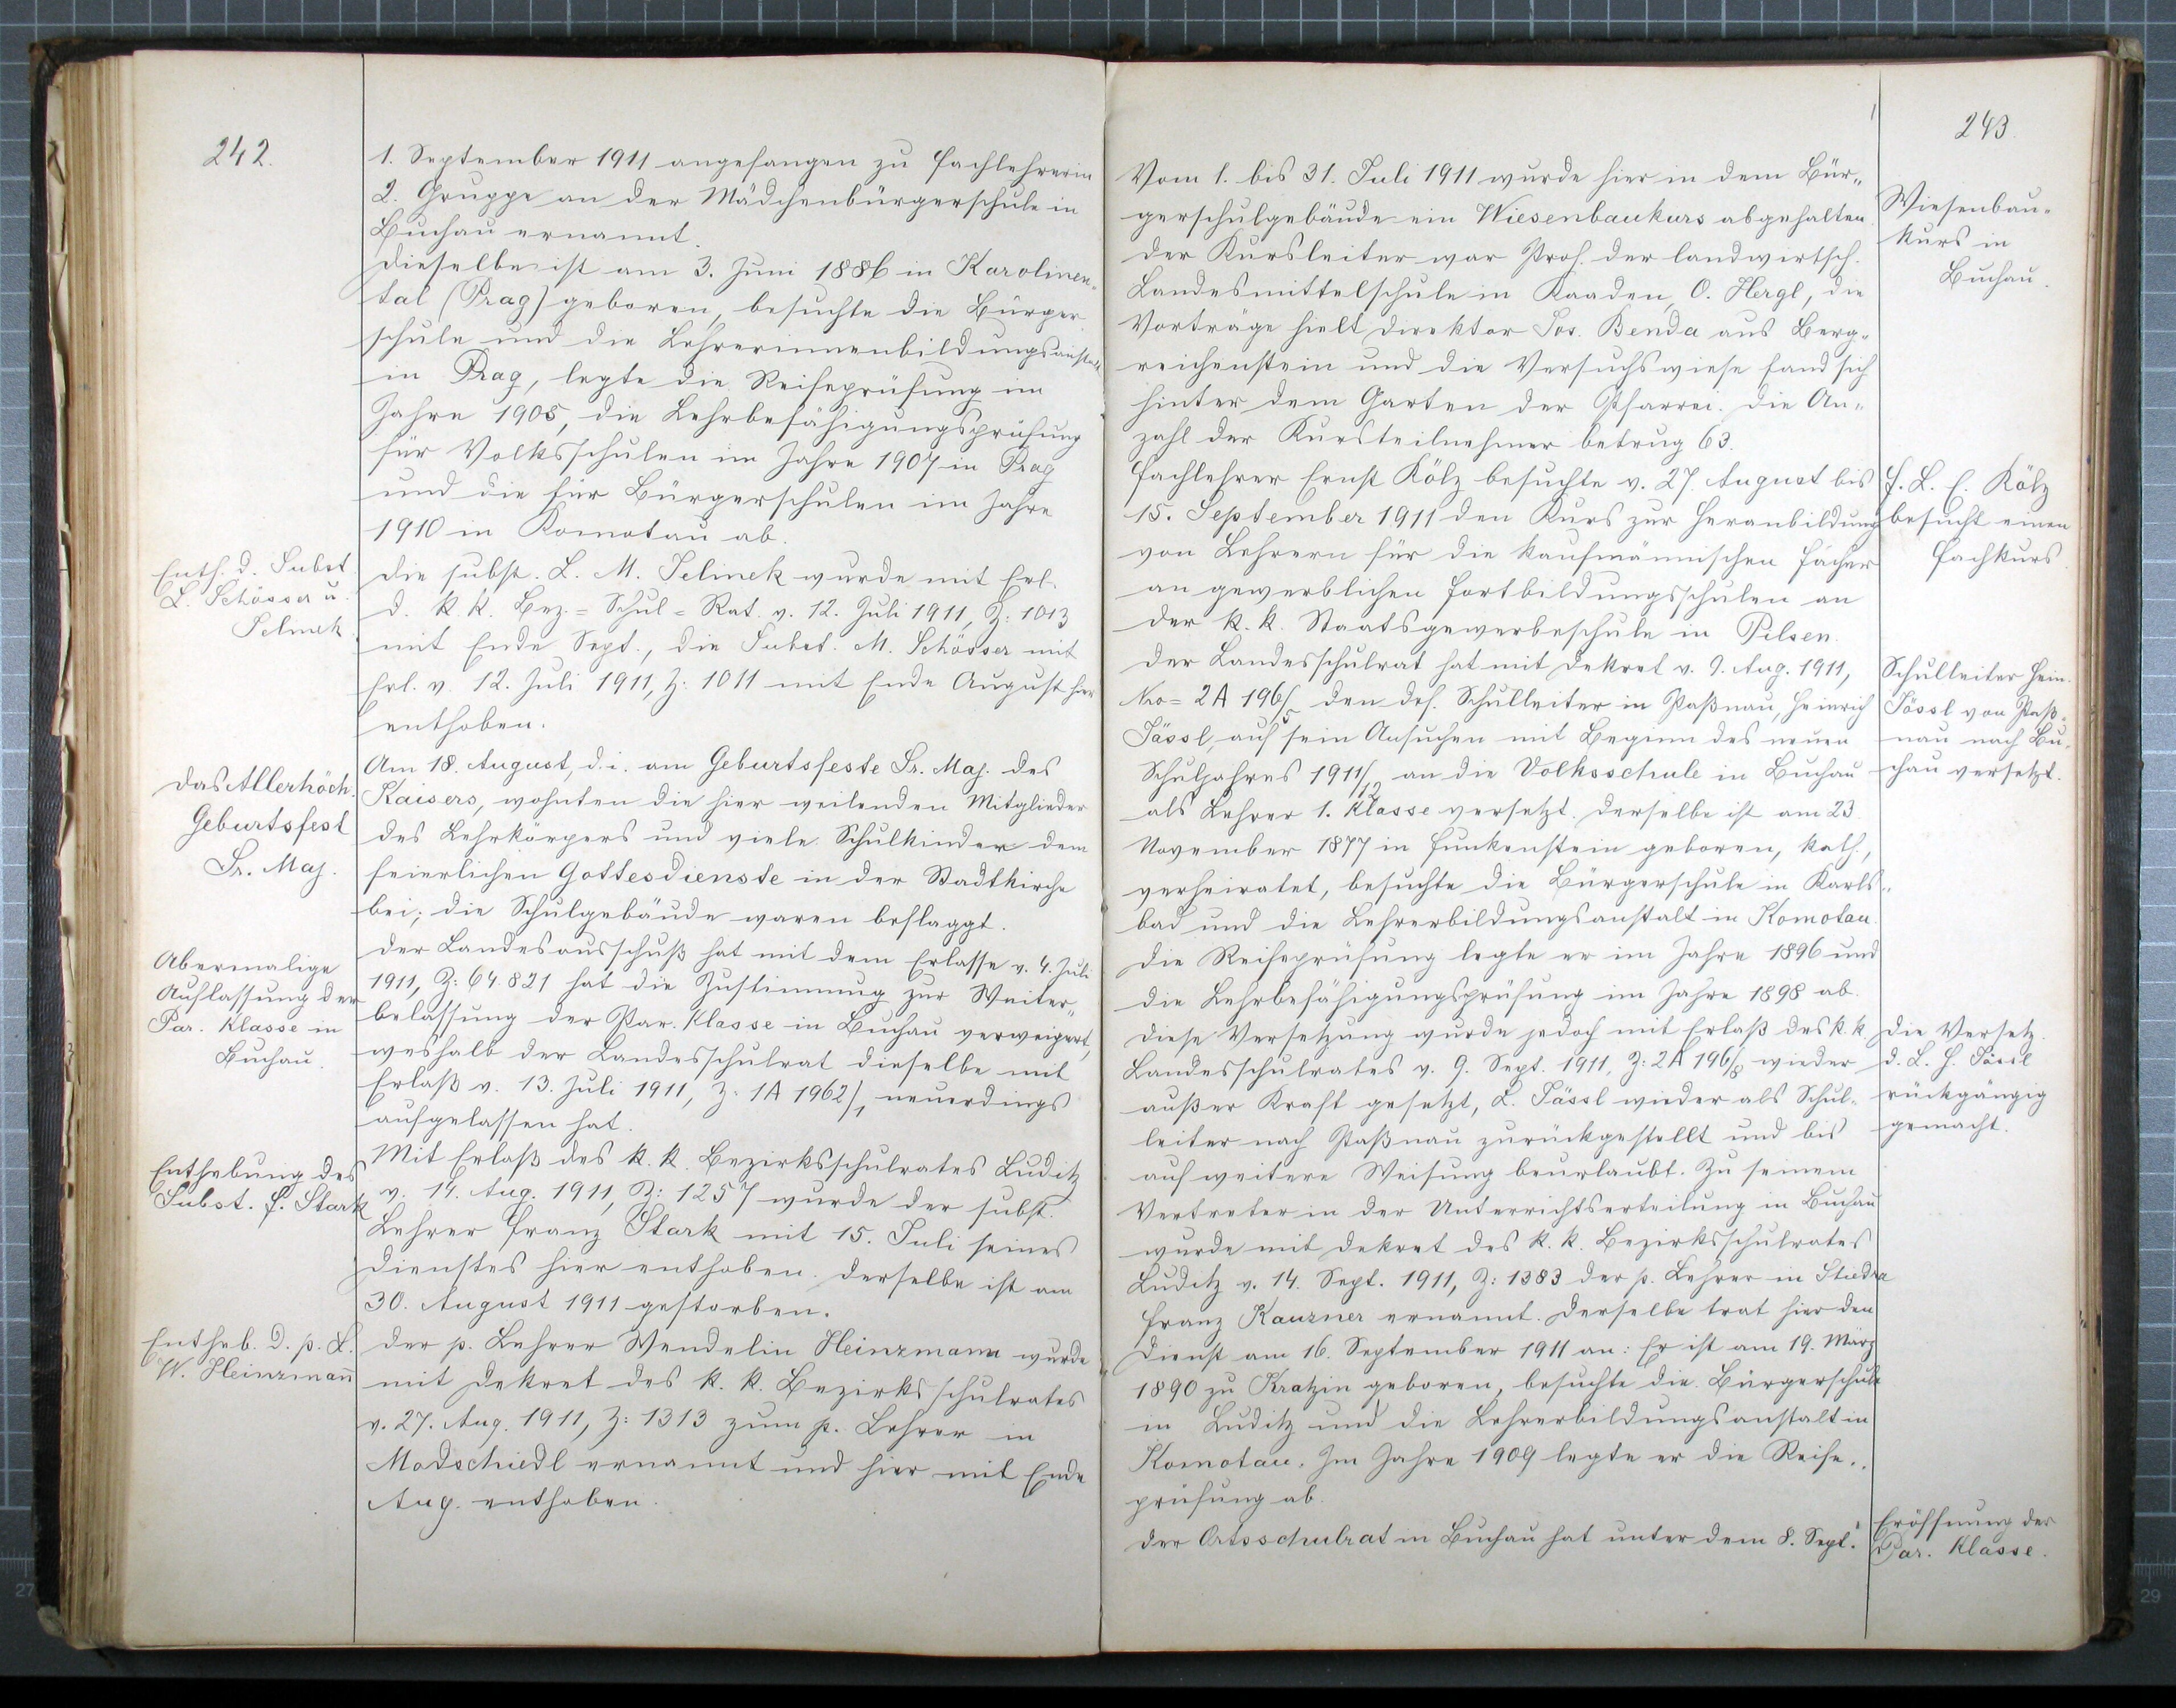 242.
1. September 1911 angefangen zu Fachlehrerin
2. Gruppe an der Mädchenbürgerschule in
Buchau ernannt.
Dieselbe ist am 3. Juni 1886 in Karolinen-
tal (Prag) geboren, besuchte die Bürger
schule und die Lehrerinnenbildungsanstalt
in Prag, legte die Reifeprüfung im
Jahre 1905, die Lehrbefähigungsprüfung
für Volksschulen im Jahre 1907 in Prag
und die für Bürgerschulen im Jahre
1910 in Komotau ab.
Enth. d. Subst.
L. Schösser u.
Jelinek
Die subst. L. M. Jelinek wurde mit Erl.
d. k. k. Bez.=Schul=Rat. v. 12. Juli 1911, Z: 1013
mit Ende Sept., die Subst. M. Schösser mit
Erl. v. 12. Juli 1911, Z: 1011 mit Ende August hier
enthoben.
Das Allerhöch.
Geburtsfest
Sr. Maj.
Am 18. August, d. i. am Geburtsfeste Sr. Maj. des
Kaisers, wohnten die hier weilenden Mitglieder
des Lehrkörpers und viele Schulkinder dem
feierlichen Gottesdienste in der Stadtkirche
bei; die Schulgebäude waren beflaggt.
Abermalige
Auflassung der
Par. Klasse in
Buchau.
Der Landesausschuß hat mit dem Erlasse v. 4. Juli
1911, Z: 64.821 hat die Zustimmung zur Weiter-
belassung der Par. Klasse in Buchau verweigert,
weshalb der Landesschulrat dieselbe mit
Erlaß v. 13. Juli 1911, Z: 1A 1962/1 neuerdings
aufgelassen hat.
Enthebung des
Subst. F. Stark
Mit Erlaß des k. k. Bezirksschulrates Luditz
v. 14. Aug. 1911, Z: 1257 wurde der subst.
Lehrer Franz Stark mit 15. Juli seines
Dienstes hier enthoben. Derselbe ist am
30. August 1911 gestorben.
Entheb. d. p. L.
W. Heinzmann
Der p. Lehrer Wendelin Heinzmann wurde
mit Dekret des k. k. Bezirksschulrates
v. 27. Aug. 1911, Z: 1313 zum p. Lehrer in
Modschiedl ernannt und hier mit Ende
Aug. enthoben.
243.
Vom 1. bis 31. Juli 1911 wurde hier in dem Bür-
gerschulgebäude ein Wiesenbaukurs abgehalten.
Der Kursleiter war Prof. der landwirtsch.
Landesmittelschule in Kaaden, O. Hergl, die
Vorträge hielt Direktor Jos. Benda aus Berg-
reichenstein und die Versuchswiese fand sich
hinter dem Garten der Pfarrei. Die An-
zahl der Kursteilnehmer betrug 63.
Wiesenbau-
kurs in
Buchau.
Fachlehrer Ernst Kölz besuchte v. 27. August bis
15. September 1911 den Kurs zur Heranbildung
von Lehrern für die kaufmännischen Fächer
an gewerblichen Fortbildungsschulen an
der k. k. Staatsgewerbeschule in Pilsen.
F. L. E. Kölz
besucht einen
Fachkurs.
Der Landesschulrat hat mit Dekret v. 9. Aug. 1911,
Nro= 2A 196/5 den def. Schulleiter in Paßnau, Heinrich
Jässl, auf sein Ansuchen mit Beginn des neuen
Schuljahres 1911/12 an die Volksschule in Buchau
als Lehrer 1. Klasse versetzt. Derselbe ist am 23.
November 1877 in Funkenstein geboren, kath.,
verheiratet, besuchte die Bürgerschule in Karls-
bad und die Lehrerbildungsanstalt in Komotau.
Die Reifeprüfung legte er im Jahre 1896 und
die Lehrbefähigungsprüfung im Jahre 1898 ab.
Schulleiter Hein.
Jässl von Paß-
nau nach Bu-
chau versetzt.
Diese Versetzung wurde jedoch mit Erlaß des k. k.
Landesschulrates v. 9. Sept. 1911, Z: 2A 196/8 wieder
außer Kraft gesetzt, L. Jässl wieder als Schul-
leiter nach Paßnau zurückgestellt und bis
auf weitere Weisung beurlaubt. Zu seinem
Vertreter in der Unterrichtserteilung in Buchau
wurde mit Dekret des k. k. Bezirksschulrates
Luditz v. 14. Sept. 1911, Z: 1383 der p. Lehrer in Stiedra
Franz Kauzner ernannt. Derselbe trat hier den
Dienst am 16. September 1911 an: Er ist am 19. März
1890 zu Kratzin geboren, besuchte die Bürgerschule
in Luditz und die Lehrerbildungsanstalt in
Komotau. Im Jahre 1909 legte er die Reife-
prüfung ab.
Die Versetz.
d. L. H. Jässl
rückgängig
gemacht.
Der Ortsschulrat in Buchau hat unter dem 8. Sept.
Eröffnung der
Par. Klasse.
27
29